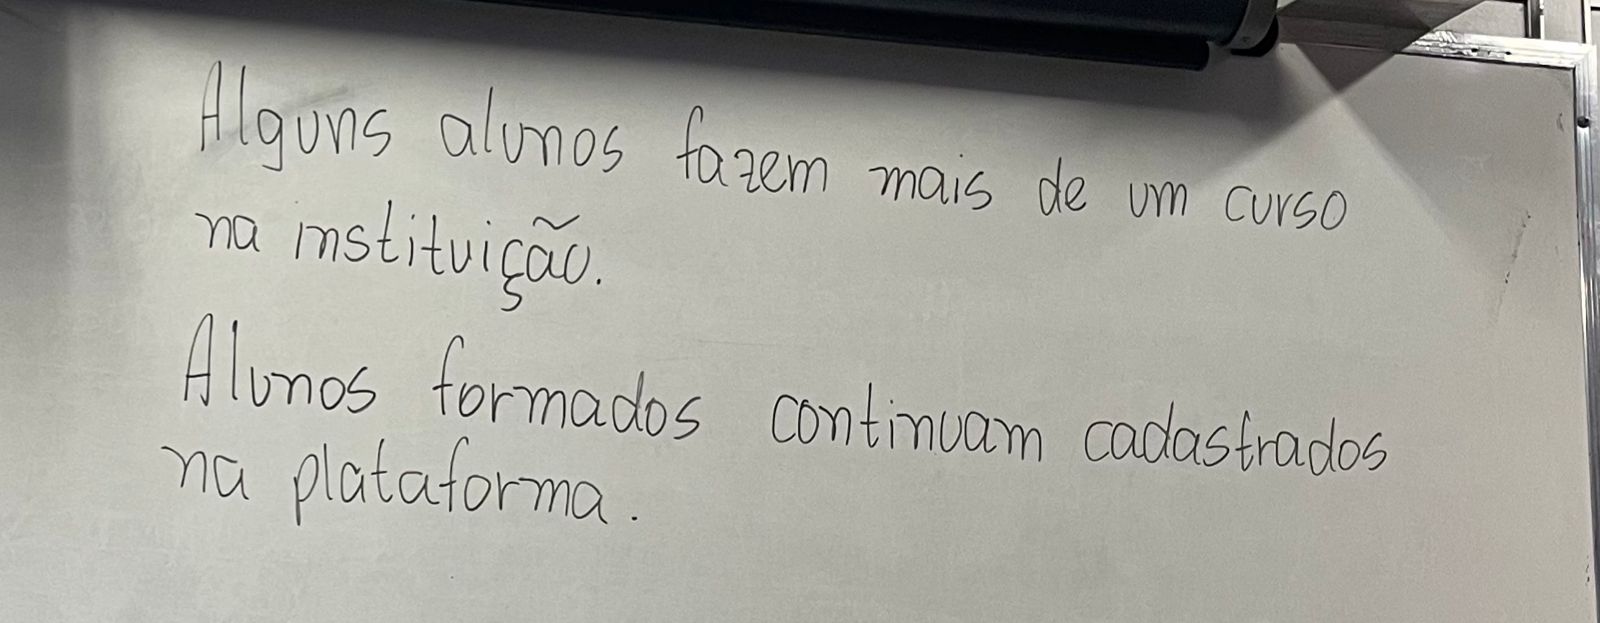 Alguns alunos fazem mais de um curso
na instituição.
Alunos formados continuam cadastrados
na plataforma.